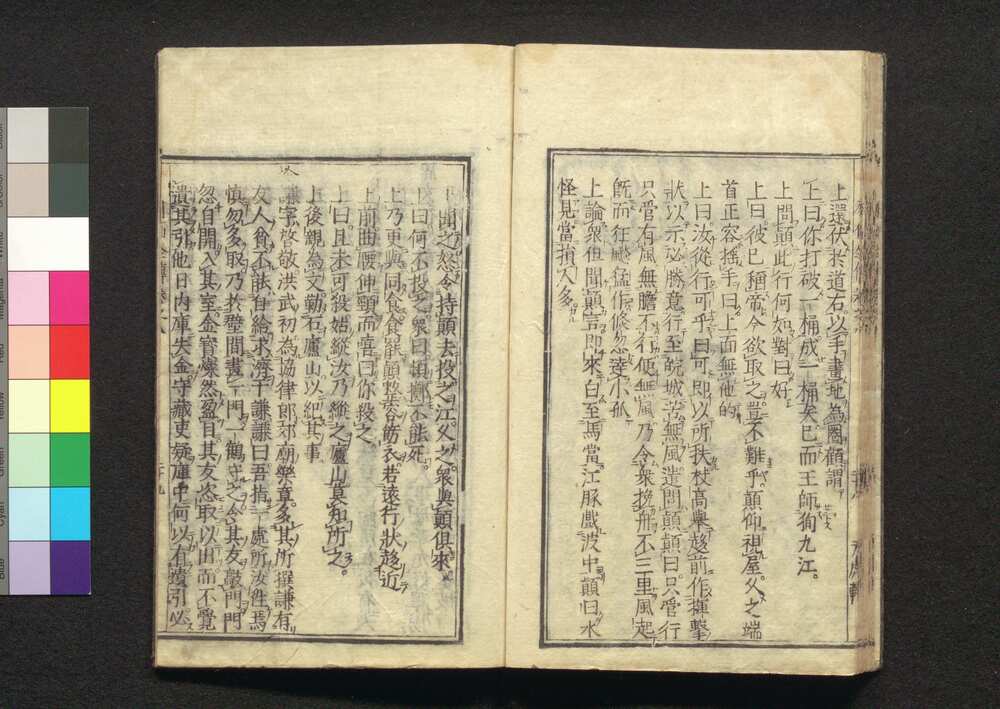 上還伏於道右以手畫地為圈顧謂
上曰你打破一桶成一桶矣已而王師狥九江
上問顛此行何如對曰好
上曰彼已稱帝今欲取之豈不難乎顛仰視屋久之端
首正容搖手曰上面無他的
上曰汝從行可乎曰可即以所扶杖高舉趍前作揮擊
狀以示必勝意行至皖城苦無風遣問顛顛曰只管行
只管有風無膽不行便無風乃令衆挽舟不三里風起
既而狂飈猛作倐忽達小孤
上論衆但聞顛言即來白至馬當江豚戲波中顛曰水
怪見當損人多
上聞之怒令持顛去投之江久之衆與顛俱來
上曰何不投之衆曰頓擲不能死
上乃更與同食食罷顛整容飭衣若遠行狀趍近
上前曲腰伸頸而言曰你殺之
上曰且未可殺姑縱汝乃縱之廬山莫知所之
上後親為文勒石廬山以紀其事
謙字啓敬洪武初為協律郎郊廟樂章多其所撰謙有
友人貧不能自給求濟于謙謙曰吾指一處所汝往焉
慎勿多取乃於壁間畫一門一鶴守之令其友敲門門
忽自開入其室金寳燦然盈目其友恣取以出而不覺
遺其引他日內庫失金守藏吏疑庫中何以有遺引必